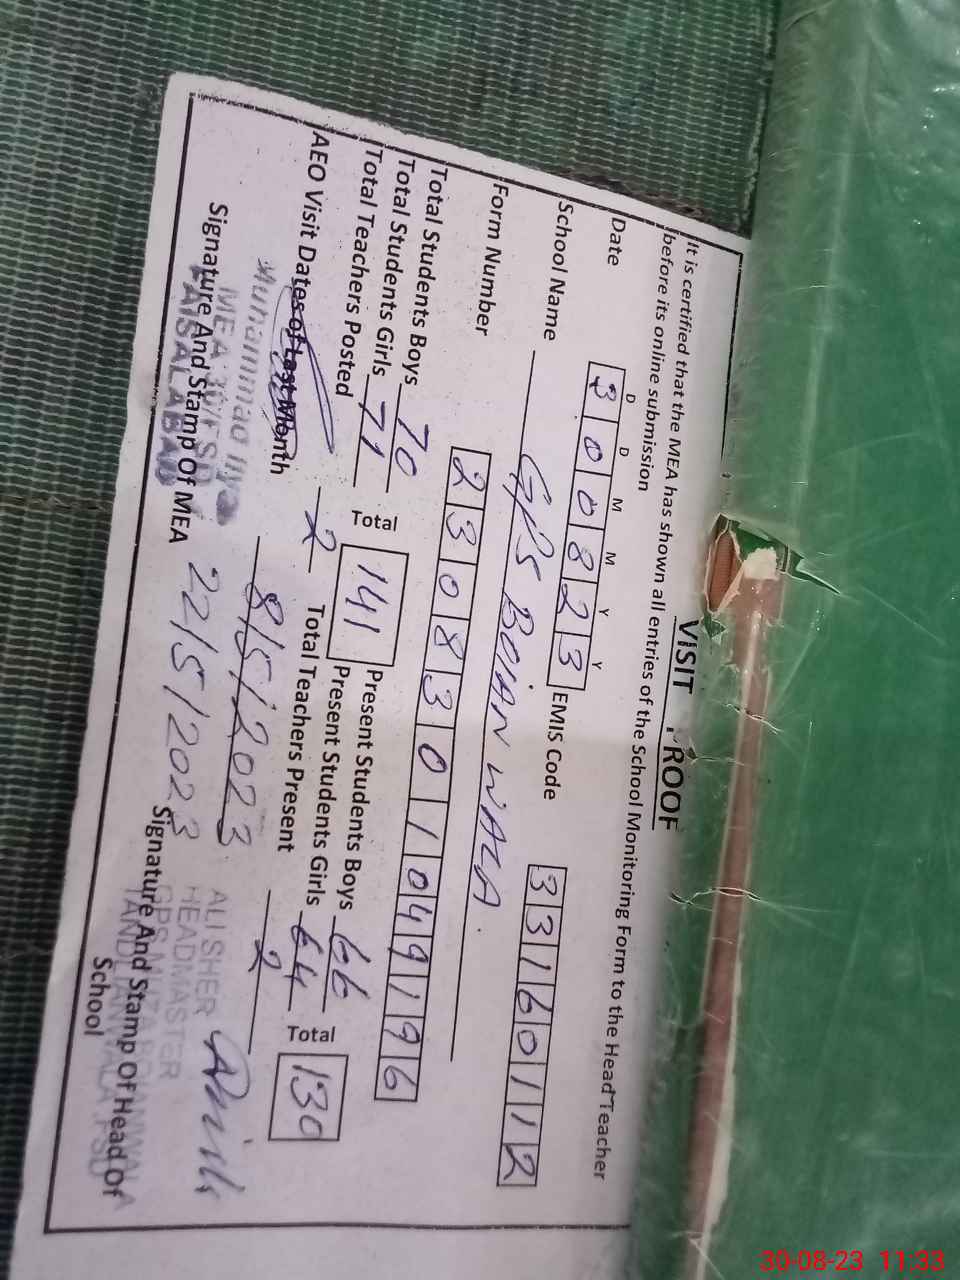 VISIT PROOF
It is certified that the MEA has shown all entries of the School Monitoring Form to the Head Teacher
before its online submission
D D M M Y Y
Date 300823 EMIS Code 33160112
School Name GPS BOHAN WALA.
Form Number 2308301049196
Total Students Boys 70 Total 141 Present Students Boys 66 Total 130
Total Students Girls 71 Present Students Girls 64
Total Teachers Posted 2 Total Teachers Present 2
AEO Visit Dates of Last Month 8/5/2023
22/5/2023
Muhammad
MEA
FAISALABAD
Signature And Stamp Of MEA
ALI SHER
HEADMASTER
Signature And Stamp Of Head Of
School
30-08-23 11:33